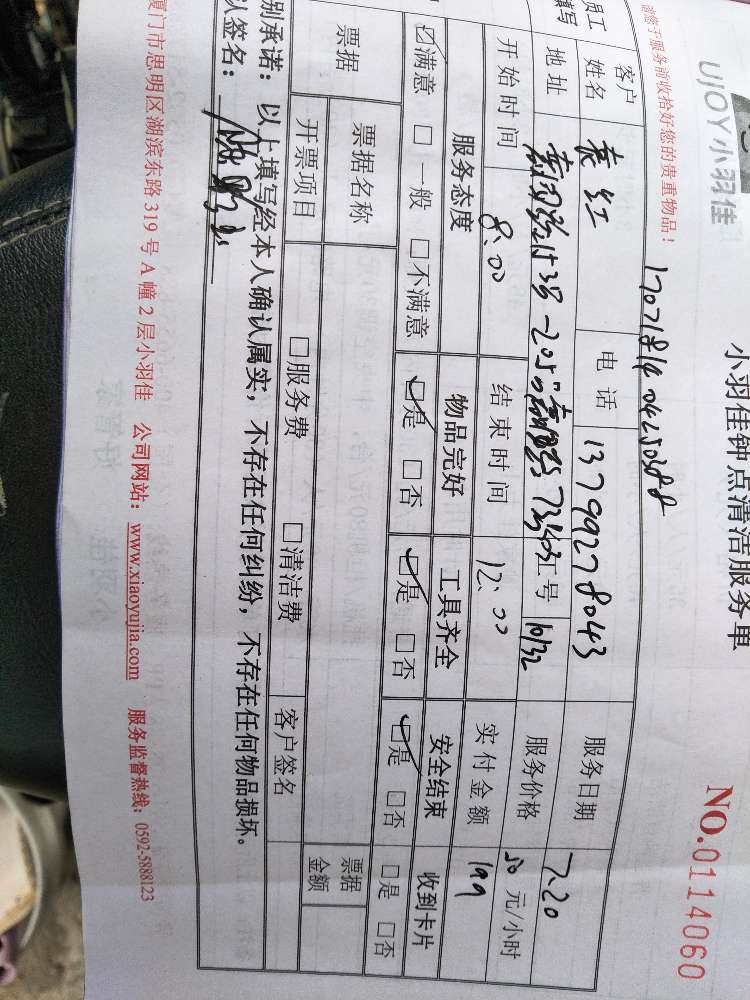 UJOY小羽佳
小羽佳钟点清洁服务单
NO.0114060
请您于服务前收拾好您的贵重物品！
员工
填写
客户
姓名
袁红
电话
13799278043
服务日期
7.20
地址
工号
10132
服务价格
50 元/小时
开始时间
8:00
结束时间
12:00
实付金额
199
服务态度
物品完好
工具齐全
安全结束
收到卡片
☑满意 □一般 □不满意
☑是 □否
☑是 □否
☑是 □否
□是 □否
票据
票据名称
票据
金额
开票项目
□服务费
□清洁费
客户签名
别承诺：以上填写经本人确认属实，不存在任何纠纷，不存在任何物品损坏。
认签名：
厦门市思明区湖滨东路 319 号 A 幢 2 层小羽佳 公司网站：www.xiaoyujia.com 服务监督热线：0592-5888123